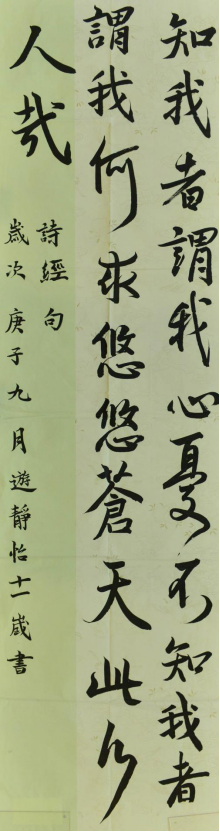 知我者謂我心憂不知我者
謂我何求悠悠蒼天此何
人哉
詩經句
歲次庚子九月遊靜怡十一歲書